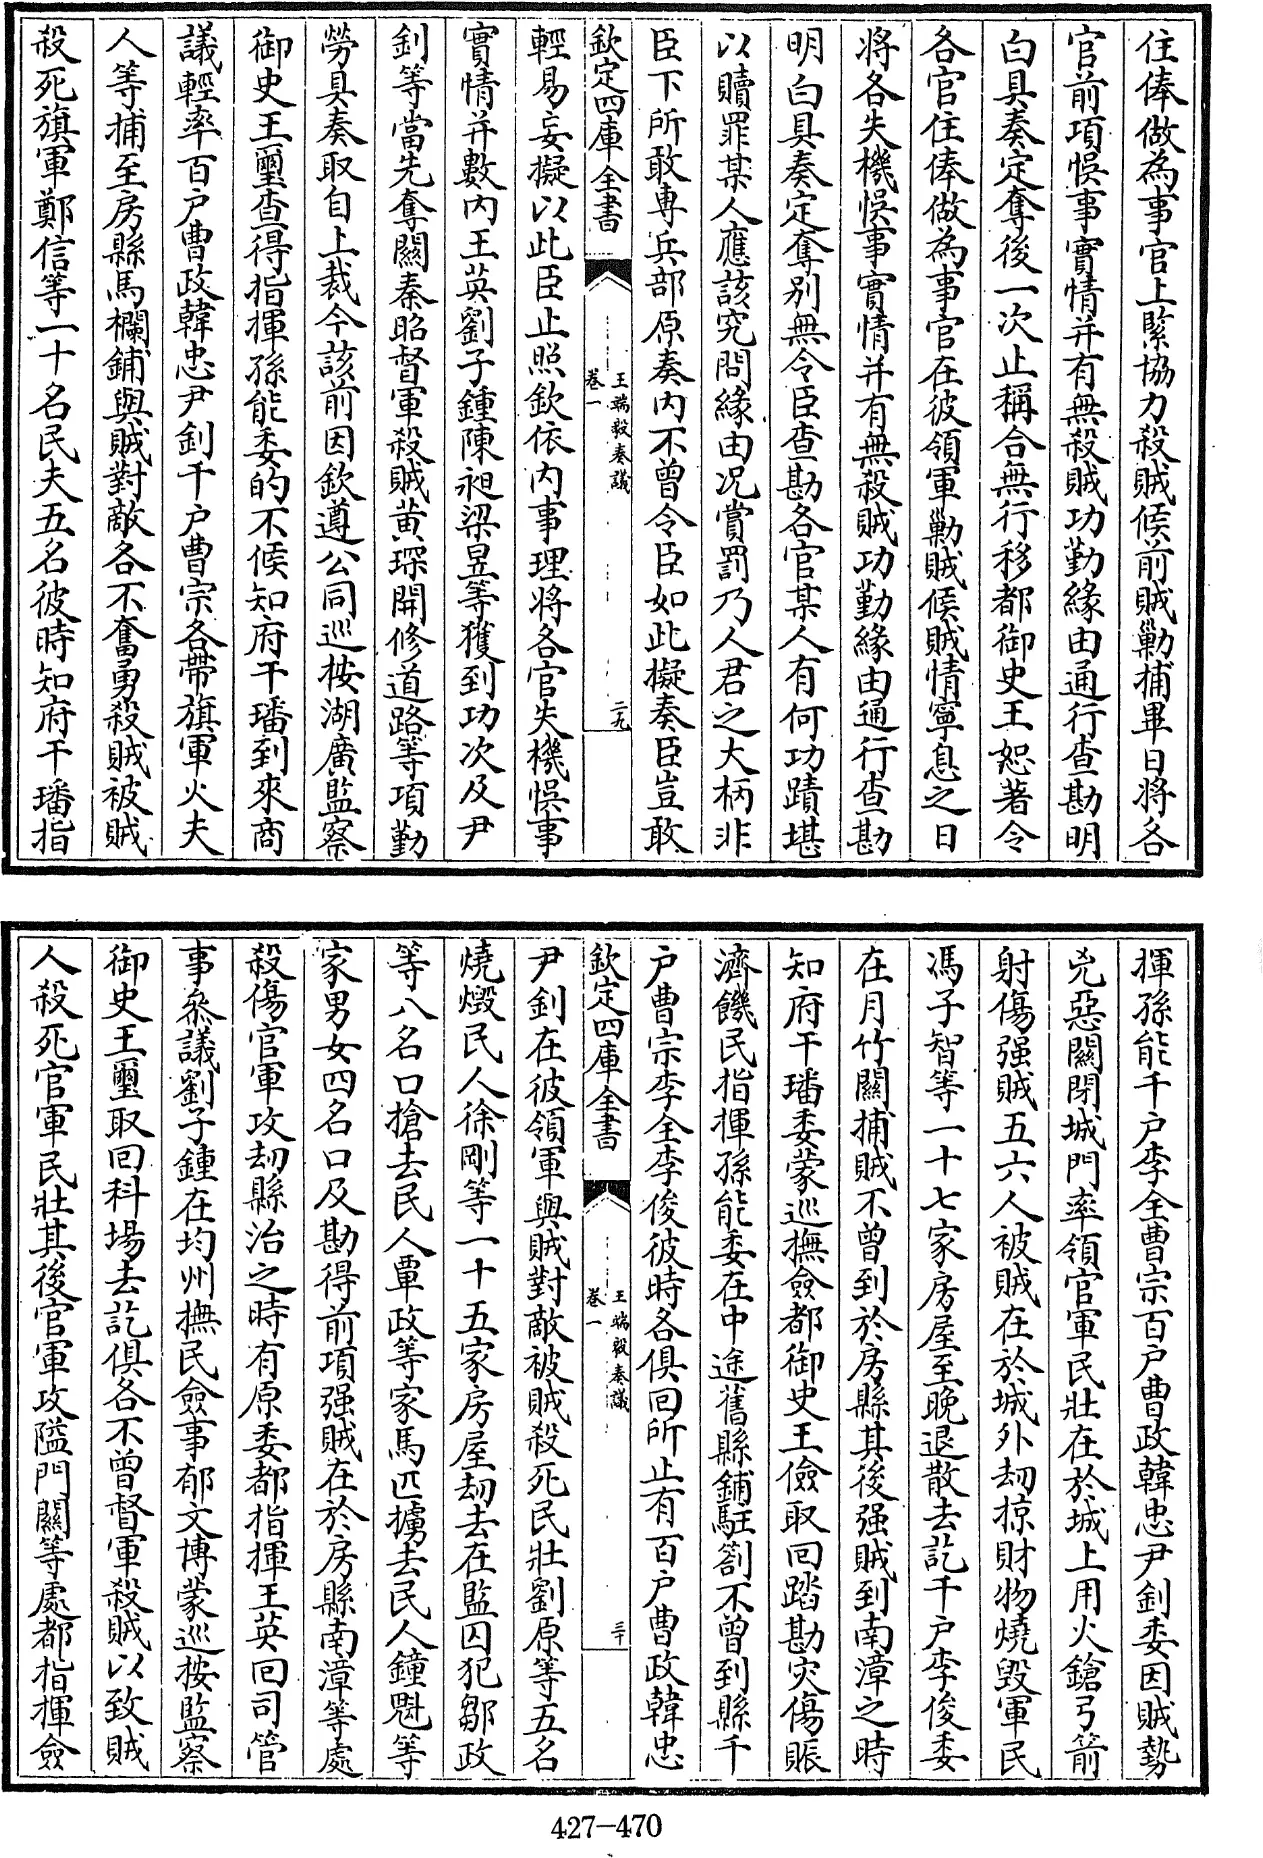 住俸做為事官上緊協力殺賊候前賊勦捕畢日將各
官前項悞事實情并有無殺賊功勤緣由通行查勘明
白具奏定奪後一次止稱合無行移都御史王恕著令
各官住俸做為事官在彼領軍勦賊候賊情寧息之日
將各失機悞事實情并有無殺賊功勤緣由通行查勘
明白具奏定奪别無令臣查勘各官某人有何功蹟堪
以贖罪某人應該究問緣由况賞罰乃人君之大柄非
臣下所敢專兵部原奏内不曾令臣如此擬奏臣豈敢
欽定四庫全書
王端毅奏議
卷一
二九
輕易妄擬以此臣止照欽依内事理將各官失機悞事
實情并數内王英劉子鍾陳昶梁昱等獲到功次及尹
釗等當先奪關秦昭督軍殺賊黄琛開修道路等項勤
勞具奏取自上裁今該前因欽遵公同巡按湖廣監察
御史王璽查得指揮孫能委的不候知府干璠到來商
議輕率百户曹政韓忠尹釗千户曹宗各帶旗軍火夫
人等捕至房縣馬欄鋪與賊對敵各不奮勇殺賊被賊
殺死旗軍鄭信等一十名民夫五名彼時知府干璠指
揮孫能千户李全曹宗百户曹政韓忠尹釗委因賊勢
兇惡關閉城門率領官軍民壯在於城上用火鎗弓箭
射傷强賊五六人被賊在於城外刼掠財物燒毁軍民
馮子智等一十七家房屋至晚退散去訖千户李俊委
在月竹關捕賊不曾到於房縣其後强賊到南漳之時
知府干璠委蒙巡撫僉都御史王儉取回踏勘灾傷賑
濟饑民指揮孫能委在中途舊縣鋪駐劄不曾到縣千
户曹宗李全李俊彼時各俱回所止有百户曹政韓忠
欽定四庫全書
王端毅奏議
卷一
三十
尹釗在彼領軍與賊對敵被賊殺死民壯劉原等五名
燒燬民人徐剛等一十五家房屋刼去在監囚犯鄒政
等八名口搶去民人覃政等家馬匹擄去民人鐘魁等
家男女四名口及勘得前項强賊在於房縣南漳等處
殺傷官軍攻刼縣治之時有原委都指揮王英回司管
事叅議劉子鍾在均州撫民僉事郁文博蒙巡按監察
御史王璽取回科場去訖俱各不曾督軍殺賊以致賊
人殺死官軍民壯其後官軍攻隘門關等處都指揮僉
427-470